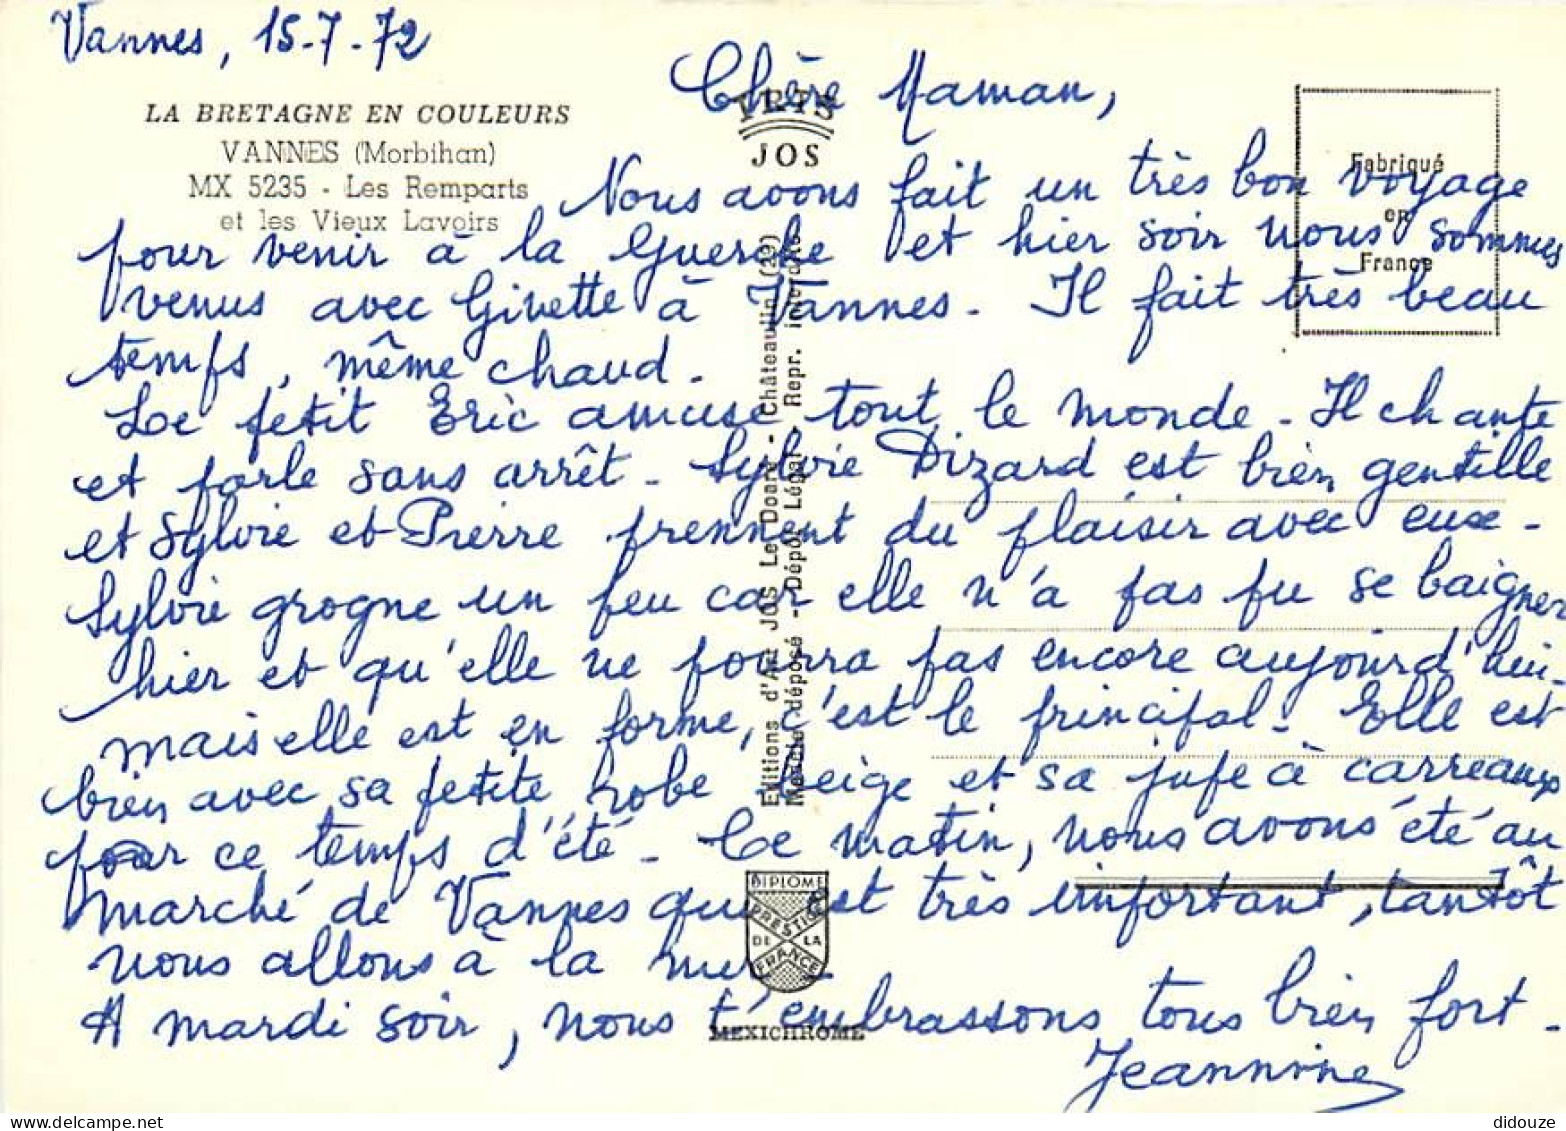 Vannes, 15-7-72
LA BRETAGNE EN COULEURS
VANNES (Morbihan)
MX 5235 - Les Remparts
et les Vieux Lavoirs
YRIS
JOS
Fabriqué
en
France
Chère Maman,
Nous avons fait un très bon voyage
pour venir à la Guerche et hier soir nous sommes
venus avec Ginette à Vannes. Il fait très beau
temps, même chaud.
Le petit Eric amuse tout le monde - Il chante
et parle sans arrêt - Sylvie Dizard est bien gentille
et Sylvie et Pierre prennent du plaisir avec eux -
Sylvie grogne un peu car elle n'a pas pu se baigner
hier et qu'elle ne pourra pas encore aujourd'hui -
mais elle est en forme, c'est le principal - Elle est
bien avec sa petite robe beige et sa jupe à carreaux
pour ce temps d'été - Ce matin, nous avons été au
marché de Vannes qui est très important, tantôt
nous allons à la mer.
A mardi soir, nous t'embrassons tous bien fort -
Jeannine
Editions d'Art JOS Le Doaré - Châteaulin (29)
Marque déposé - Dépôt Légal - Repr. interdite
DIPLOME
PRESTIGE
DE LA
FRANCE
MEXICHROME
didouze